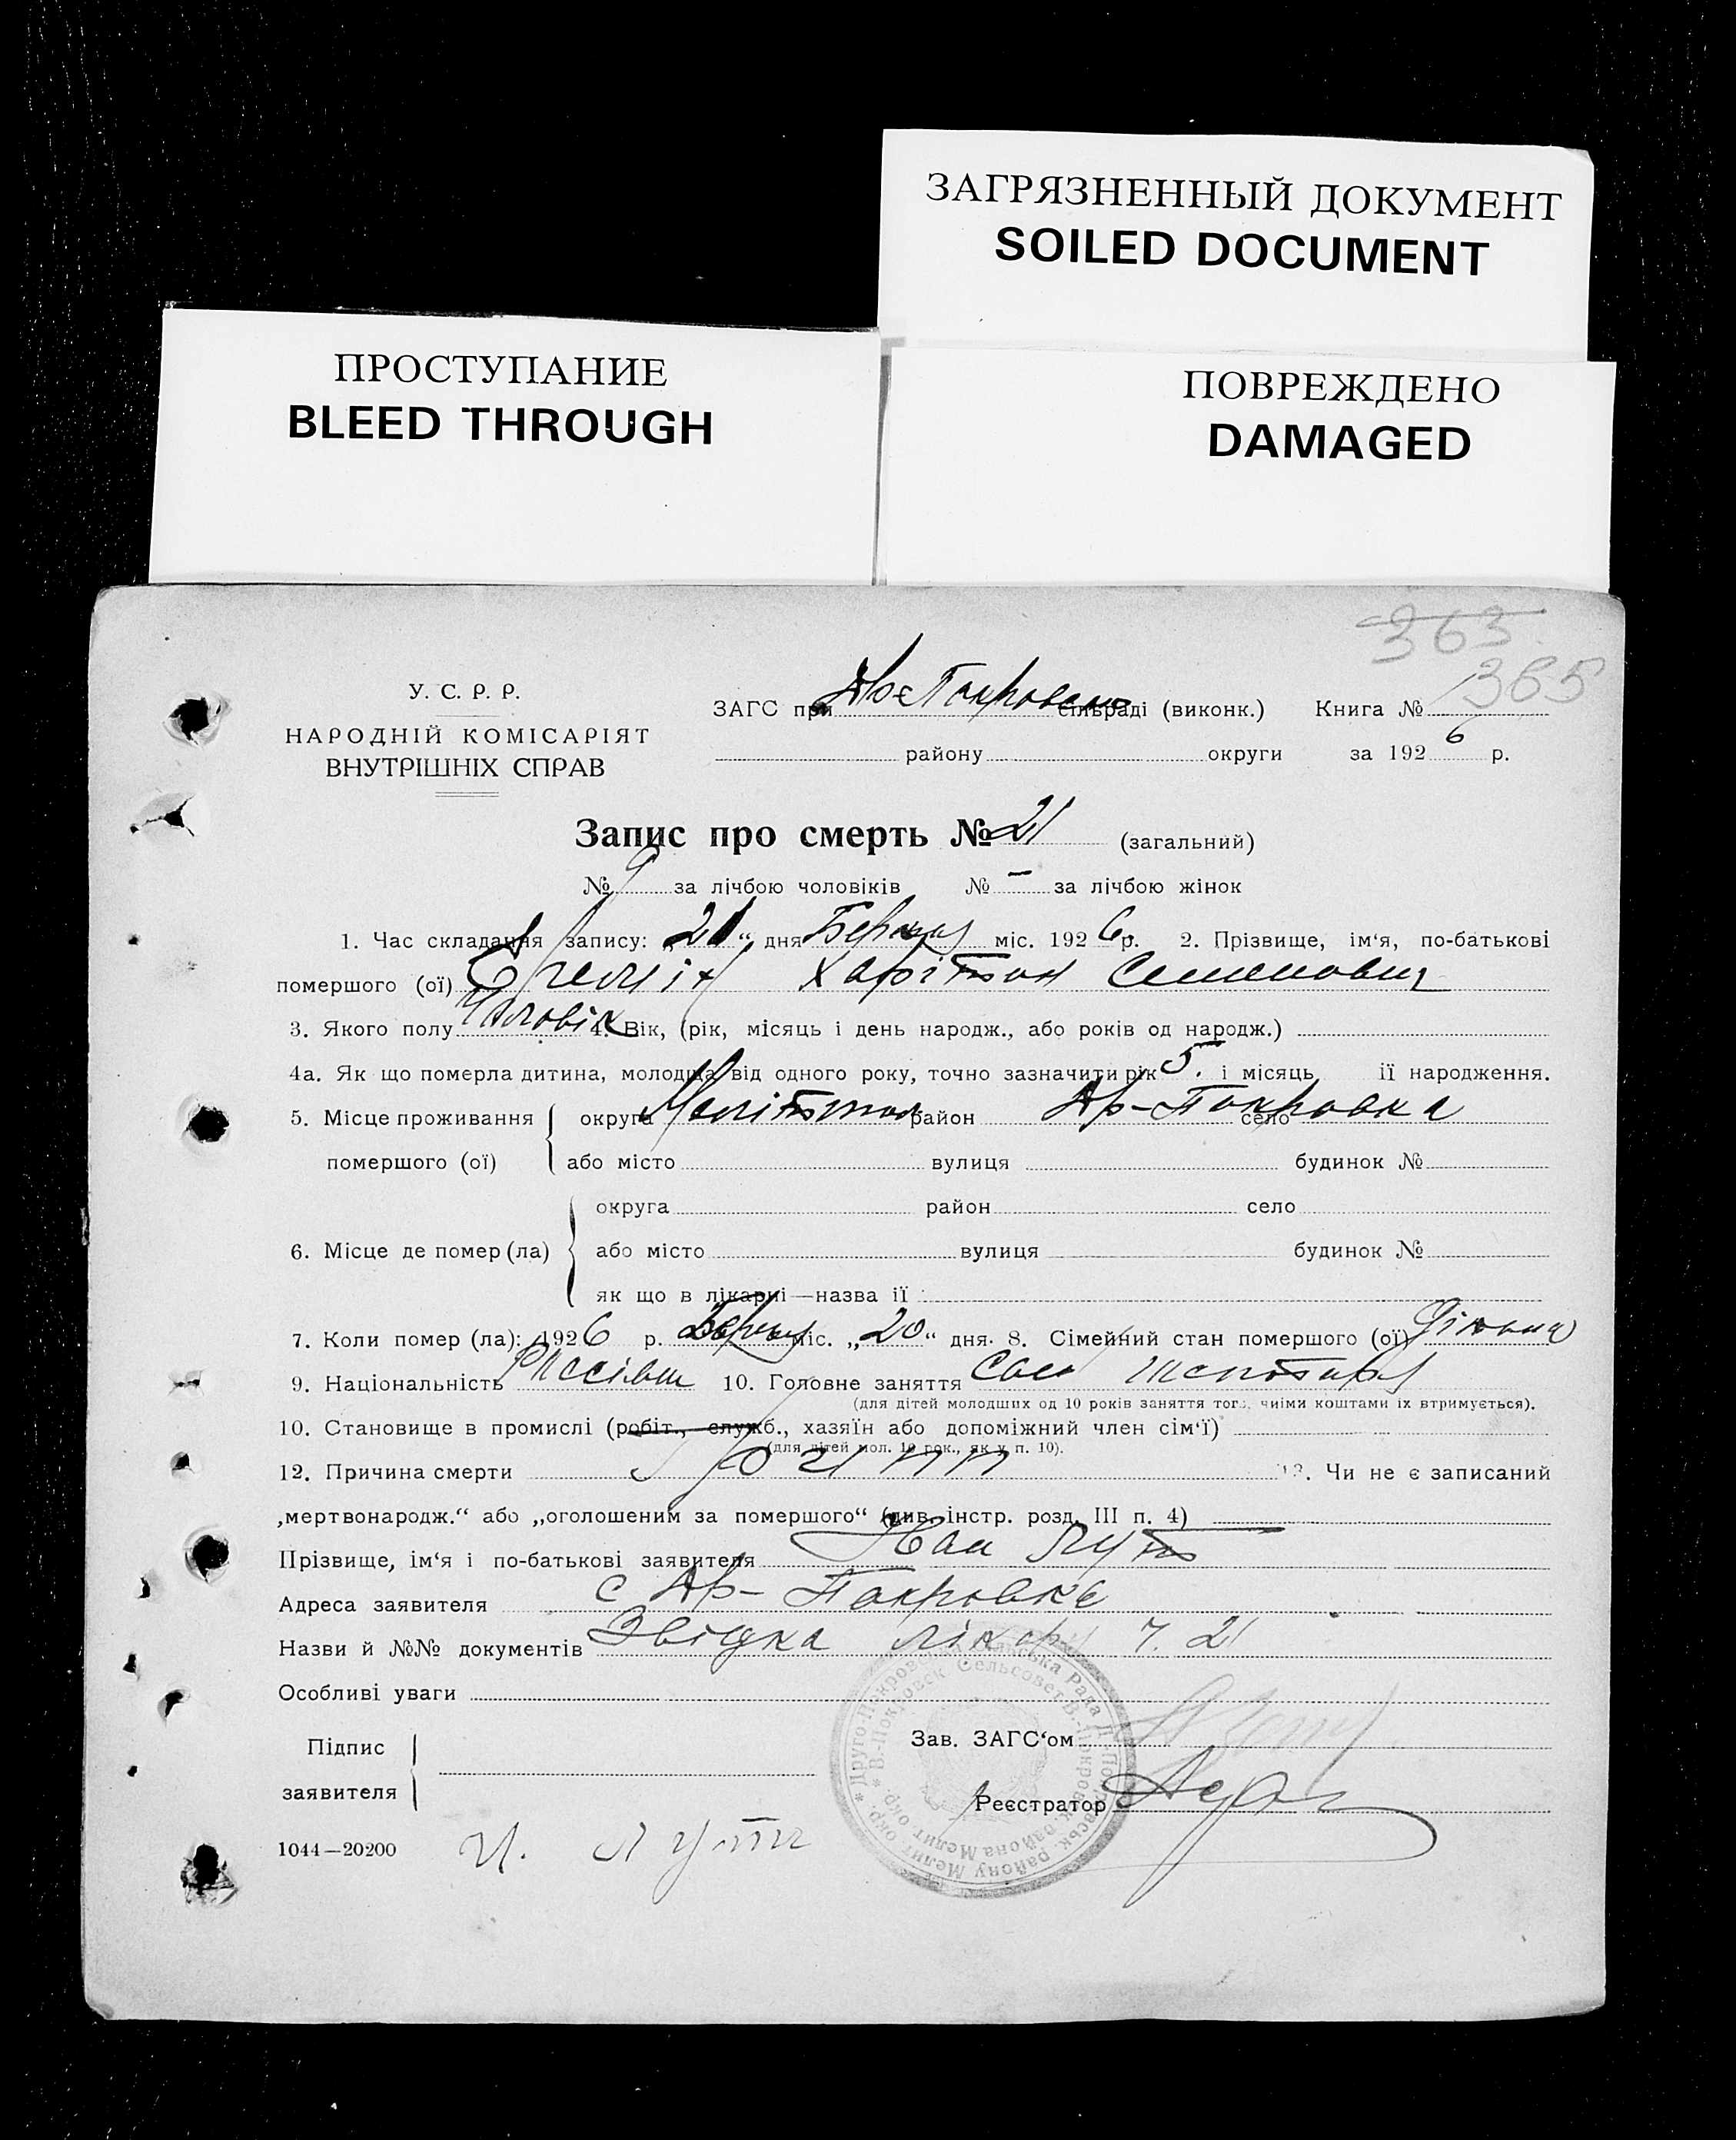 ЗАГРЯЗНЕННЫЙ ДОКУМЕНТ
SOILED DOCUMENT
ПРОСТУПАНИЕ
BLEED THROUGH
ПОВРЕЖДЕНО
DAMAGED
363
365
У. С. Р. Р.
НАРОДНІЙ КОМІСАРІЯТ
ВНУТРІШНІХ СПРАВ
ЗАГС при сільраді (виконк.) Книга №
району округи за 1926 р.
Запис про смерть № 21 (загальний)
№ 9 за лічбою чоловіків № – за лічбою жінок
1. Час складання запису: 21 “ дня міс. 1926 р. 2. Прізвище, ім‘я, по-батькові
помершого (ої) Харітон Семенович
3. Якого полу Чоловік 4. Вік, (рік, місяць і день народж., або років од народж.)
4а. Як що померла дитина, молодща від одного року, точно зазначити рік 5. і місяць її народження.
5. Місце проживання округа район село Др-Покровка
помершого (ої) або місто вулиця будинок №
округа район село
6. Місце де помер (ла) або місто вулиця будинок №
як що в лікарні—назва її
7. Коли помер (ла): 1926 р. міс. „20“ дня. 8. Сімейний стан помершого (ої)
9. Національність 10. Головне заняття
(для дітей молодших од 10 років заняття того, чиїми коштами їх втримується).
10. Становище в промислі (робіт., служб., хазяїн або допоміжний член сім‘ї)
(для дітей мол. 10 рок., як у п. 10).
12. Причина смерти 13. Чи не є записаний
„мертвонародж.“ або „оголошеним за помершого“ (див. інстр. розд. III п. 4)
Прізвище, ім‘я і по-батькові заявителя
Адреса заявителя с Др-Покровке
Назви й №№ документів Звідка лікаря ч. 21
Особливі уваги
Підпис
заявителя
Зав. ЗАГС‘ом
Реєстратор
1044—20200